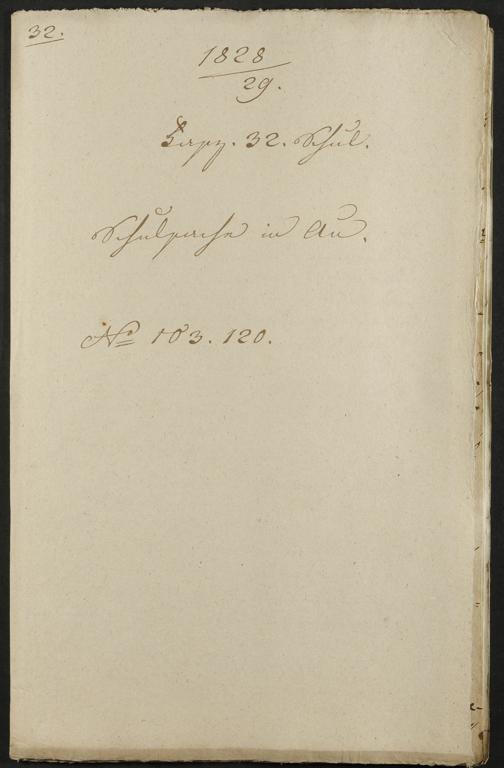 32.
1828
29.
Fasz. 32. Schul.
Schulsache in Au.
No 103. 120.